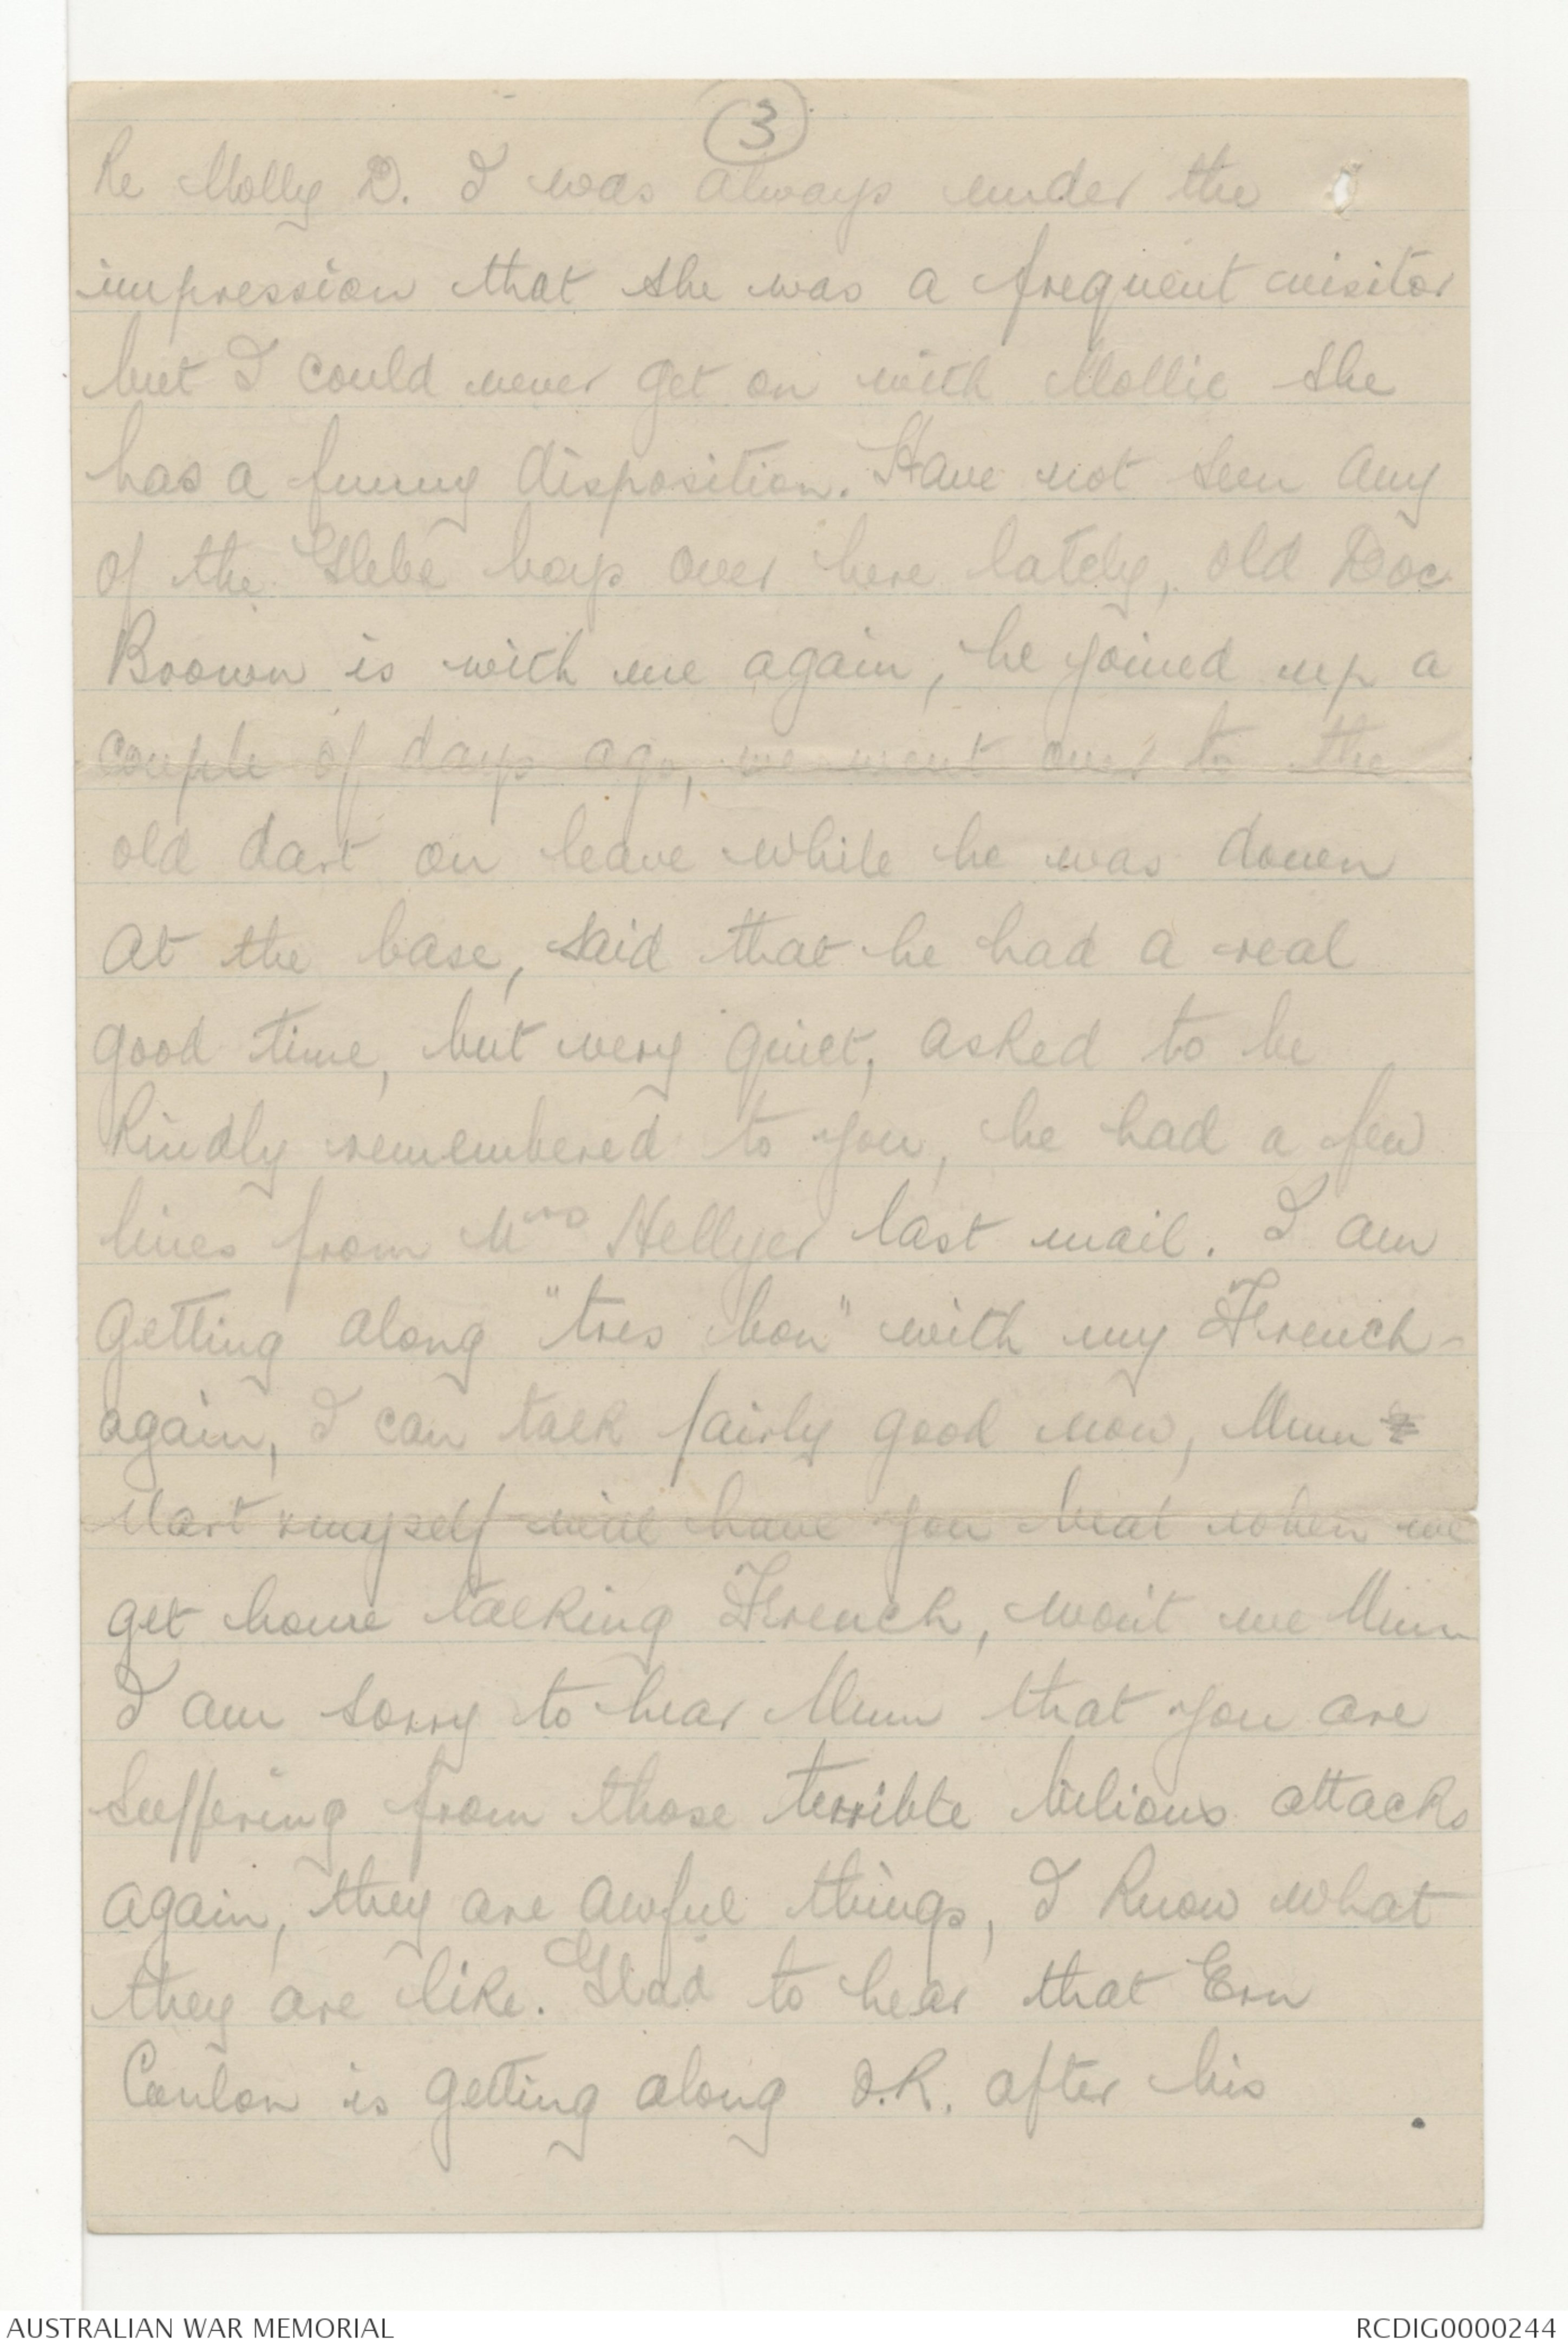 3
Re Molly D. I was always under the
impression that she was a frequent visitor
but I could never get on with Mollie she
has a funny disposition. Have not seen any
of the Glebe boys over here lately, old Doc
Brown is with me again, he joined up a
couple of days ago, we went over to the
old dart on leave while he was down
at the base, said that he had a real
good time, but very quiet, asked to be
kindly remembered to you, he had a few
lines from Mrs Hellyer last mail. I am
getting along "tres bon" with my French-
again, I can talk fairly good now, Mum
Mart & myself will have you beat when we
get home talking French, won't we Mum
I am sorry to hear Mum that you are
suffering from those terrible bilious attacks
again, they are awful things, I know what
they are like. Glad to hear that Ern
Conlon is getting along O.K. after his
AUSTRALIAN WAR MEMORIAL
RCDIG0000244